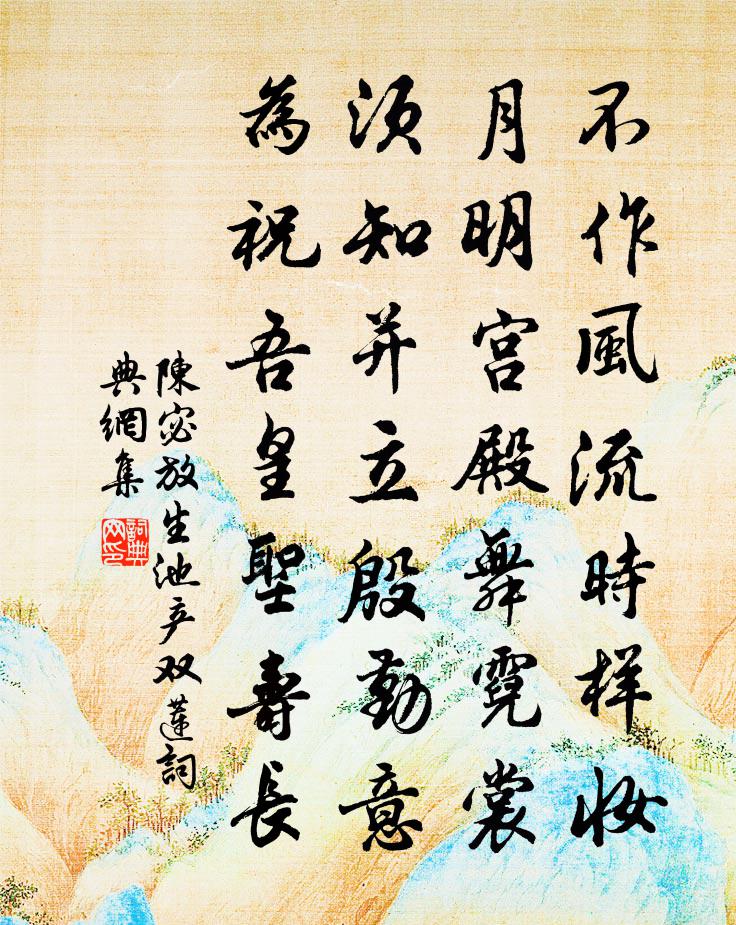 不作風流時样妆
月明宫殿舞霓裳
须知并立殷勤意
為祝吾皇聖壽長
陳宓放生池产双蓮詞
典網集
詞典
网印